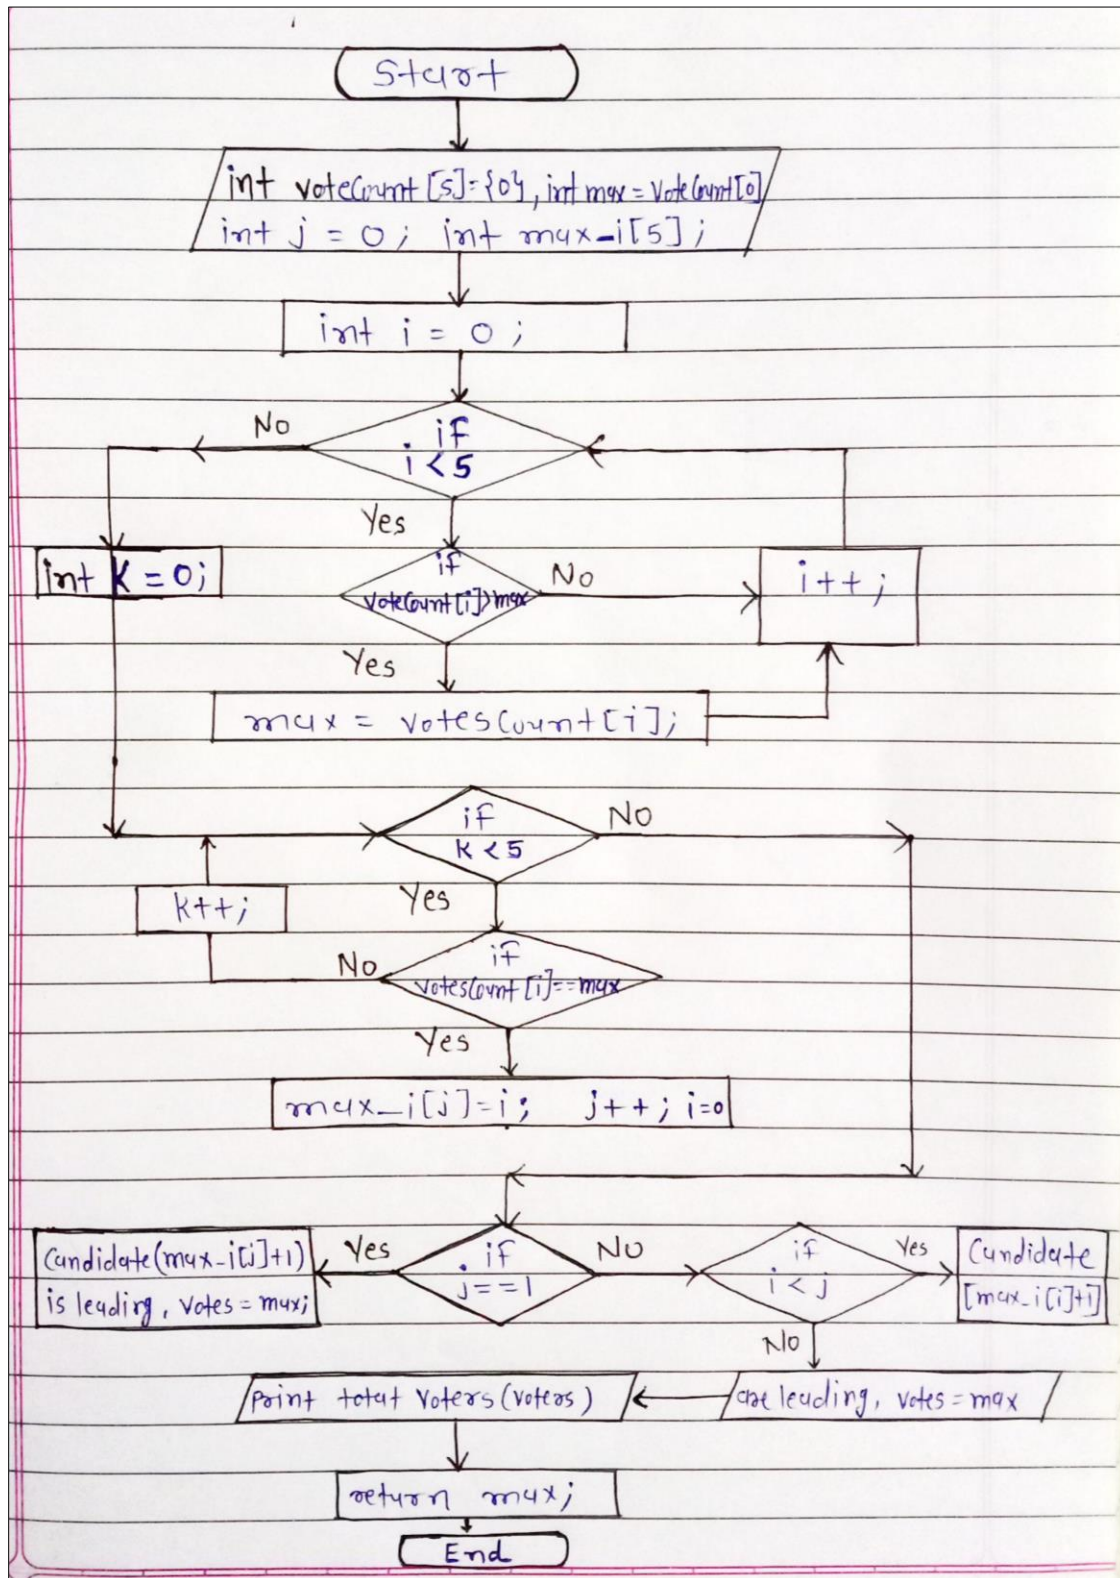 Start
int voteCount[5]={0}, int max = VoteCount[0]
int j = 0; int max_i[5];
int i = 0;
if
i < 5
No
Yes
int K = 0;
if
VoteCount[i]>max
No
i++;
Yes
max = votesCount[i];
if
K < 5
No
k++;
Yes
if
votesCount[i]==max
No
Yes
max_i[j]=i; j++; i=0
Candidate(max-i[j]+1)
is leading, votes = max;
Yes
if
j==1
No
if
i < j
Yes
Candidate
[max_i[i]+1]
No
print total voters(voters)
are leading, votes = max
return max;
End